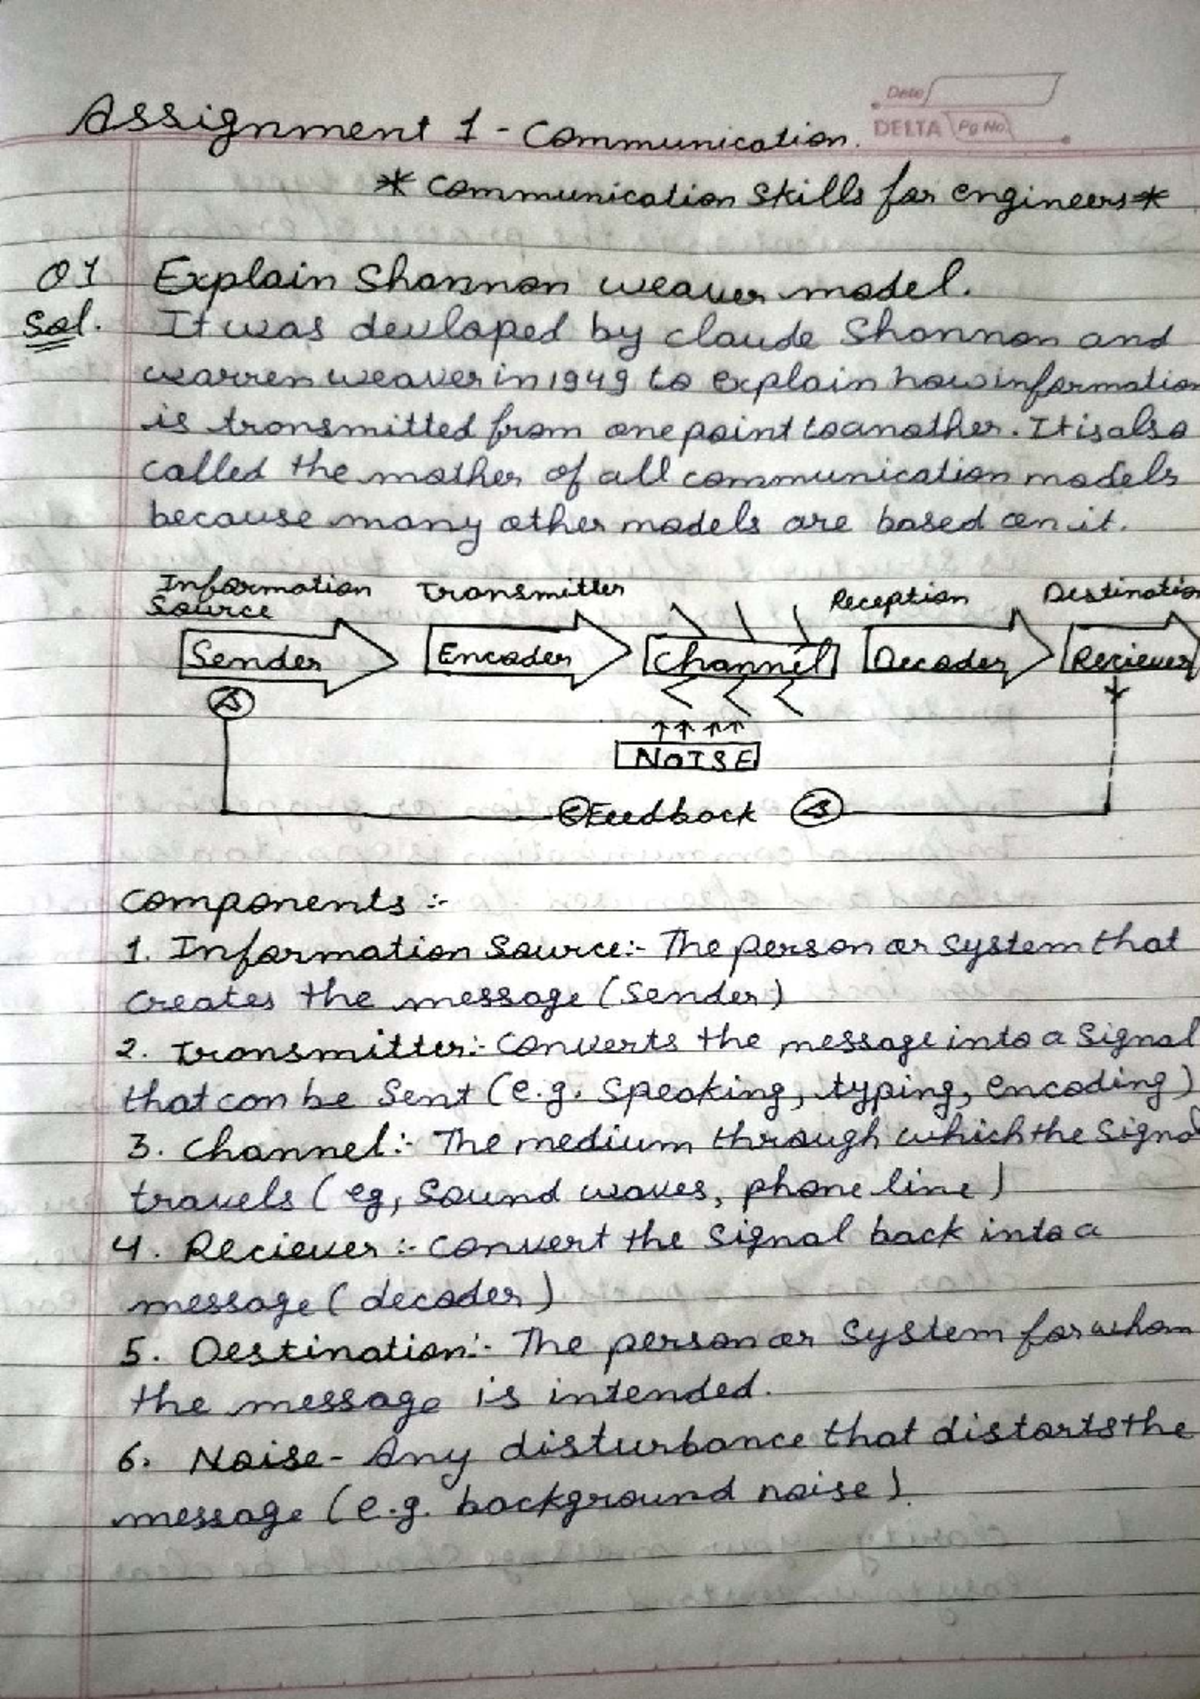 Date
DELTA Pg No.
Assignment 1 - Communication.
* Communication Skills for engineers *
Q1 Explain Shannon weaver model.
Sol. It was devloped by claude Shannon and
warren weaver in 1949 to explain how information
is transmitted from one point to another. It is also
called the mother of all communication models
because many other models are based on it.
Information Source Transmitter Reception Destination
Sender Encoder Channel Decoder Reciever
NOISE
Feedback
Components :-
1. Information Source:- The person or system that
creates the message (Sender)
2. Transmitter:- Converts the message into a Signal
that can be Sent (e.g. Speaking, typing, encoding)
3. Channel:- The medium through which the Signal
travels (eg, Sound waves, phone line)
4. Reciever :- Convert the Signal back into a
message (decoder)
5. Destination:- The person or System for whom
the message is intended.
6. Noise - Any disturbance that distorts the
message (e.g. background noise).